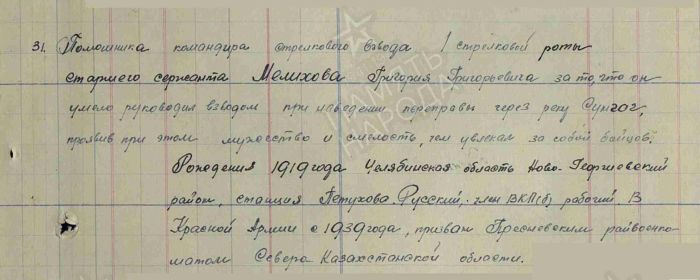 31. Помошника командира стрелкового взвода 1 стрелковой роты
старшего сержанта Мелихова Григория Григорьевича за то, что он
умело руководил взводом при наведении переправы через реку Сунгач,
проявив при этом мужество и смелость, чем увлекал за собой бойцов.
Рождения 1919 года Челябинская область Ново-Георгиевский
район, станция Петухова. Русский, член ВКП(б) рабочий. В
Красной Армии с 1939 года, призван Пресновским райвоенко-
матом Северо Казахстанской области.
ПАМЯТЬ
НАРОДА